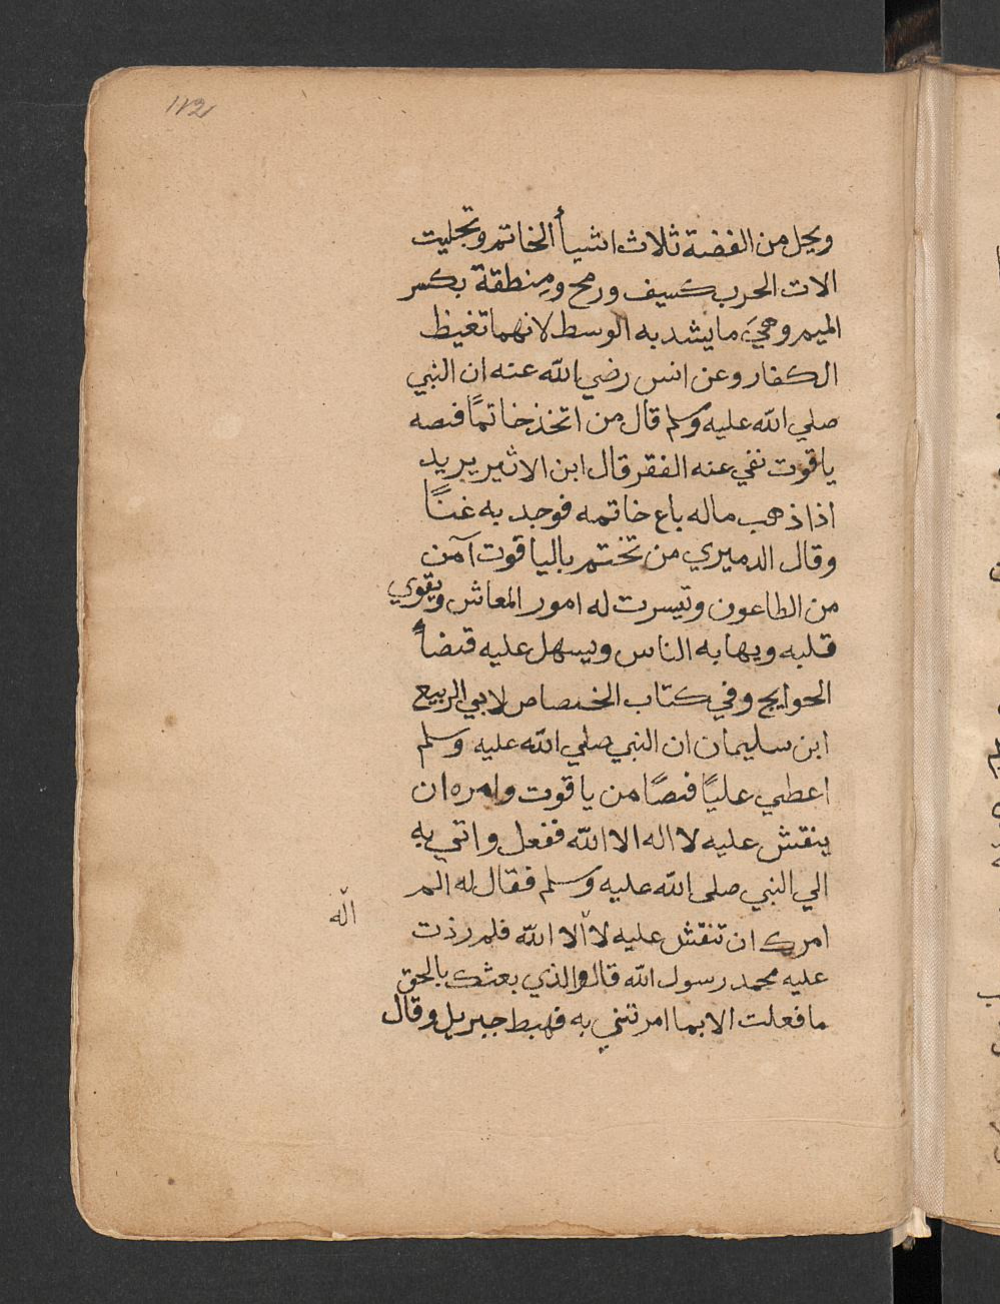 112
ويحل من الفضة ثلاث اشيأ الخاتم وتجليت
الات الحرب كسيف ورمح ومِنطقة بكسر
الميم وهيَ ما يشد به الوسط لانهما تغيظ
الكفار وعن انس رضي الله عنه ان النبي
صلي الله عليه وسلم قال من اتخذ خاتمًا فصه
ياقوت نفي عنه الفقر قال ابن الاثير يريد
اذا ذهب ماله باع خاتمه فوجد به غنًا
وقال الدميري من تختم بالياقوت آمن
من الطاعون وتيسرت له امور المعاش ويقوي
قلبه ويهابه الناس ويسهل عليه قضأ
الحوايج وفي كتاب الخصاص لابي الربيع
ابن سليمان ان النبي صلي الله عليه وسلم
اعطي عليًا فصًا من ياقوت وامره ان
ينقش عليه لا اله الا الله ففعل واتي به
الي النبي صلى الله عليه وسلم فقال له الم
امرك ان تنقش عليه لا الا الله فلم زذت
اله
عليه محمد رسول الله قال والذي بعثك بالحق
ما فعلت الا بما امرتني به فهبط جبريل وقال